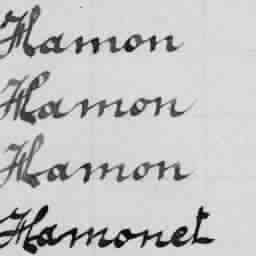 Hamon
Hamon
Hamon
Hamonet